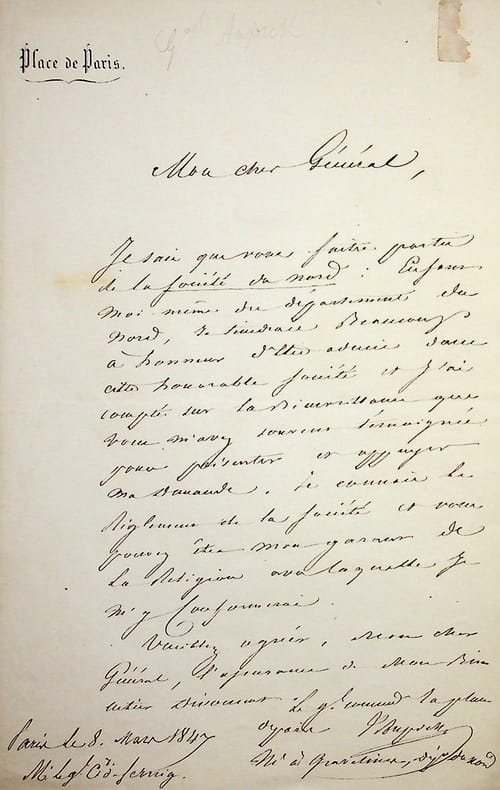 Gal Aupick
Place de Paris.
Mon cher Général,
Je sais que vous faites partie
de la Société du nord : Enfant
moi même du département du
nord, je tiendrais Beaucoup
à honneur d'être admis dans
cette honorable Société et j'ai
compté sur la Bienveillance que
vous m'avez souvent témoignée
pour présenter et appuyer
ma demande. Je connais le
Règlement de la Société et vous
pouvez être mon garant de
la Religion avec laquelle je
m'y Conformerai.
Veuillez agréer, Mon cher
Général, l'assurance de Mon Bien
entier Dévouement
Le gl. command. la place
Aupick
Né à Gravelines, dépt du nord
Paris le 8. Mars 1847
Mr le gl.